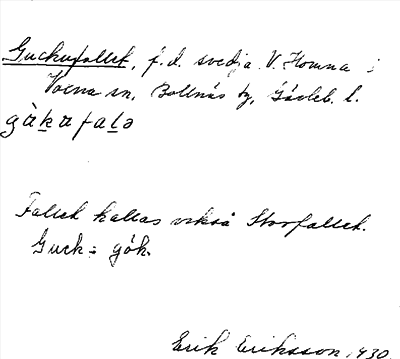 Guckufallet, f.d. svedja V. Homna i
Voxna sn, Bollnäs tg, Gävleb. l.
gàkafalə
Fallet kallas också Storfallet.
Guck = gök.
Erik Eriksson 1930.